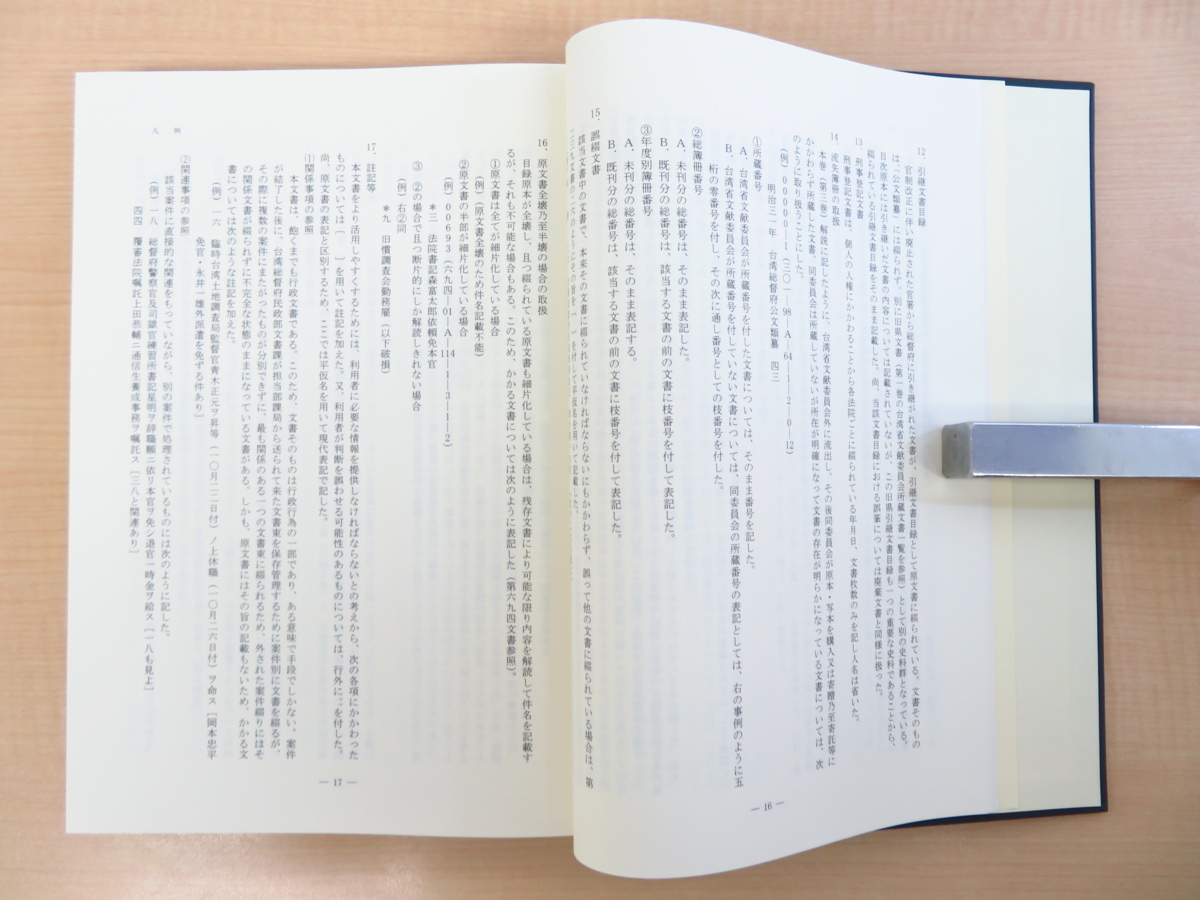 12、引継文書目録
官制改正に伴い廃止された官署から総督府に引き継がれた文書が、引継文書目録として原文書に綴られている。文書そのもの
は、「公文類纂」には綴られず、別に旧県文書（第一巻の台湾省文献委員会所蔵文書一覧を参照）として別の史料群となっている。
目次原本には引き継いだ文書の内容については記載されていないが、この旧県引継文書目録も一つの重要な史料であることから、
綴られている引継文書目録をそのまま記載した。尚、当該文書目録における誤筆については廃棄文書と同様に扱った。
13、刑事登記文書
刑事登記文書は、個人の人権にかかわることから各法院ごとに綴られている年月日、文書枚数のみを記し人名は省いた。
14、流失簿冊の取扱
本巻（第三巻）解説に記したように、台湾省文献委員会以外に流出し、その後同委員会が原本・写本を購入又は寄贈乃至寄託等に
かかわらず所蔵した文書、同委員会は所蔵していないが所在が明確になって文書の存在が明らかになっている文書については、次
のように取り扱うことにした。
（例）00001―1（三〇一―98―A―64―1―2―0―12）
明治三一年　台湾総督府公文類纂　四三
①所蔵番号
A、台湾省文献委員会が所蔵番号を付した文書については、そのまま番号を記した。
B、台湾省文献委員会が所蔵番号を付していない文書については、同委員会の所蔵番号の表記としては、右の事例のように五
桁の零番号を付し、その次に通し番号としての枝番号を付した。
②総簿冊番号
A、未刊分の総番号は、そのまま表記した。
B、既刊分の総番号は、該当する文書の前の文書に枝番号を付して表記した。
③年度別簿冊番号
A、未刊分の総番号は、そのまま表記する。
B、既刊分の総番号は、該当する文書の前の文書に枝番号を付して表記した。
15、誤綴文書
該当文書中の文書で、本来その文書に綴られていなければならないにもかかわらず、誤って他の文書に綴られている場合は、第
― 16 ―
16、原文書全壊乃至半壊の場合の取扱
目録原本が全壊し、且つ綴られている原文書も細片化している場合は、残存文書により可能な限り内容を解読して件名を記載す
るが、それも不可能な場合もある。このため、かかる文書については次のように表記した（第六九四文書参照）。
①原文書は全てが細片化している場合
（例）（原文書全壊のため件名記載不能）
②原文書の半部が細片化している場合
（例）00693（六九四―01―A―114―1―3―1―2）
＊三　法院書記森富太郎依頼免本官
③　②の場合で且つ断片的にしか解読しきれない場合
（例）右②同
＊九　旧慣調査会勤務雇（以下破損）
17、註記等
本文書をより活用しやすくするためには、利用者に必要な情報を提供しなければならないとの考えから、次の各項にかかわった
ものについては［　］を用いて註記を加えた。又、利用者が判断を誤わせる可能性のあるものについては、行外に"を付した。
尚、原文書の表記と区別するため、ここでは平仮名を用いて現代表記で記した。
①関係事項の参照
本文書は、飽くまでも行政文書である。このため、文書そのものは行政行為の一部であり、ある意味で手段でしかない。案件
が結了した後に、台湾総督府民政部文書課が担当部課局から送られて来た文書束を保存管理するために案件別に文書を綴るが、
その際に複数の案件にまたがったものが分別できずに、最も関係のある一つの文書束に綴られるため、外された案件綴りにはそ
の関係文書が綴られずに不完全な状態のままになっている文書がある。しかも、原文書にはその旨の記載もないため、かかる文
書については次のような註記を加えた。
（例）一六　臨時台湾土地調査局監督官青木正元ヲ昇等（一〇月二二日付）ノ上休職（一〇月二六日付）ヲ命ス［岡本忠平
免官・永井一雄外派遣を免ずる件あり］
②関連事項の参照
該当案件に直接的な関連をもっていながら、別の案件で処理されているものには次のように記した。
（例）一八　総督府警察官及司獄官練習所書記星明ヲ辞職願ニ依リ本官ヲ免シ退官一時金ヲ給ス［一八も見よ］
四四　覆審法院嘱託上田恭輔ニ通信生養成事務ヲ嘱託ス［三八と関連あり］
凡　例
― 17 ―